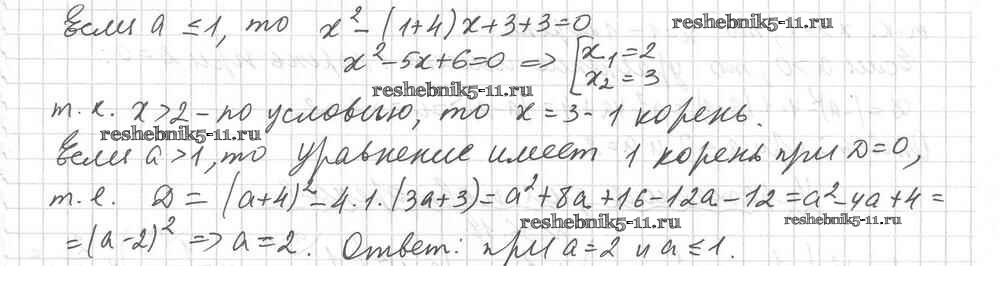 Если a ≤ 1, то x² - (1+4)x+3+3=0 reshebnik5-11.ru
x²-5x+6=0 => [x₁=2
x₂=3
reshebnik5-11.ru
т.к. x>2 - по условию, то x=3 - 1 корень.
reshebnik5-11.ru
Если a>1, то уравнение имеет 1 корень при D=0,
т.е. D = (a+4)²-4·1·(3a+3)=a²+8a+16-12a-12=a²-4a+4=
reshebnik5-11.ru reshebnik5-11.ru
=(a-2)² => a=2. Ответ: при a=2 и a≤1.